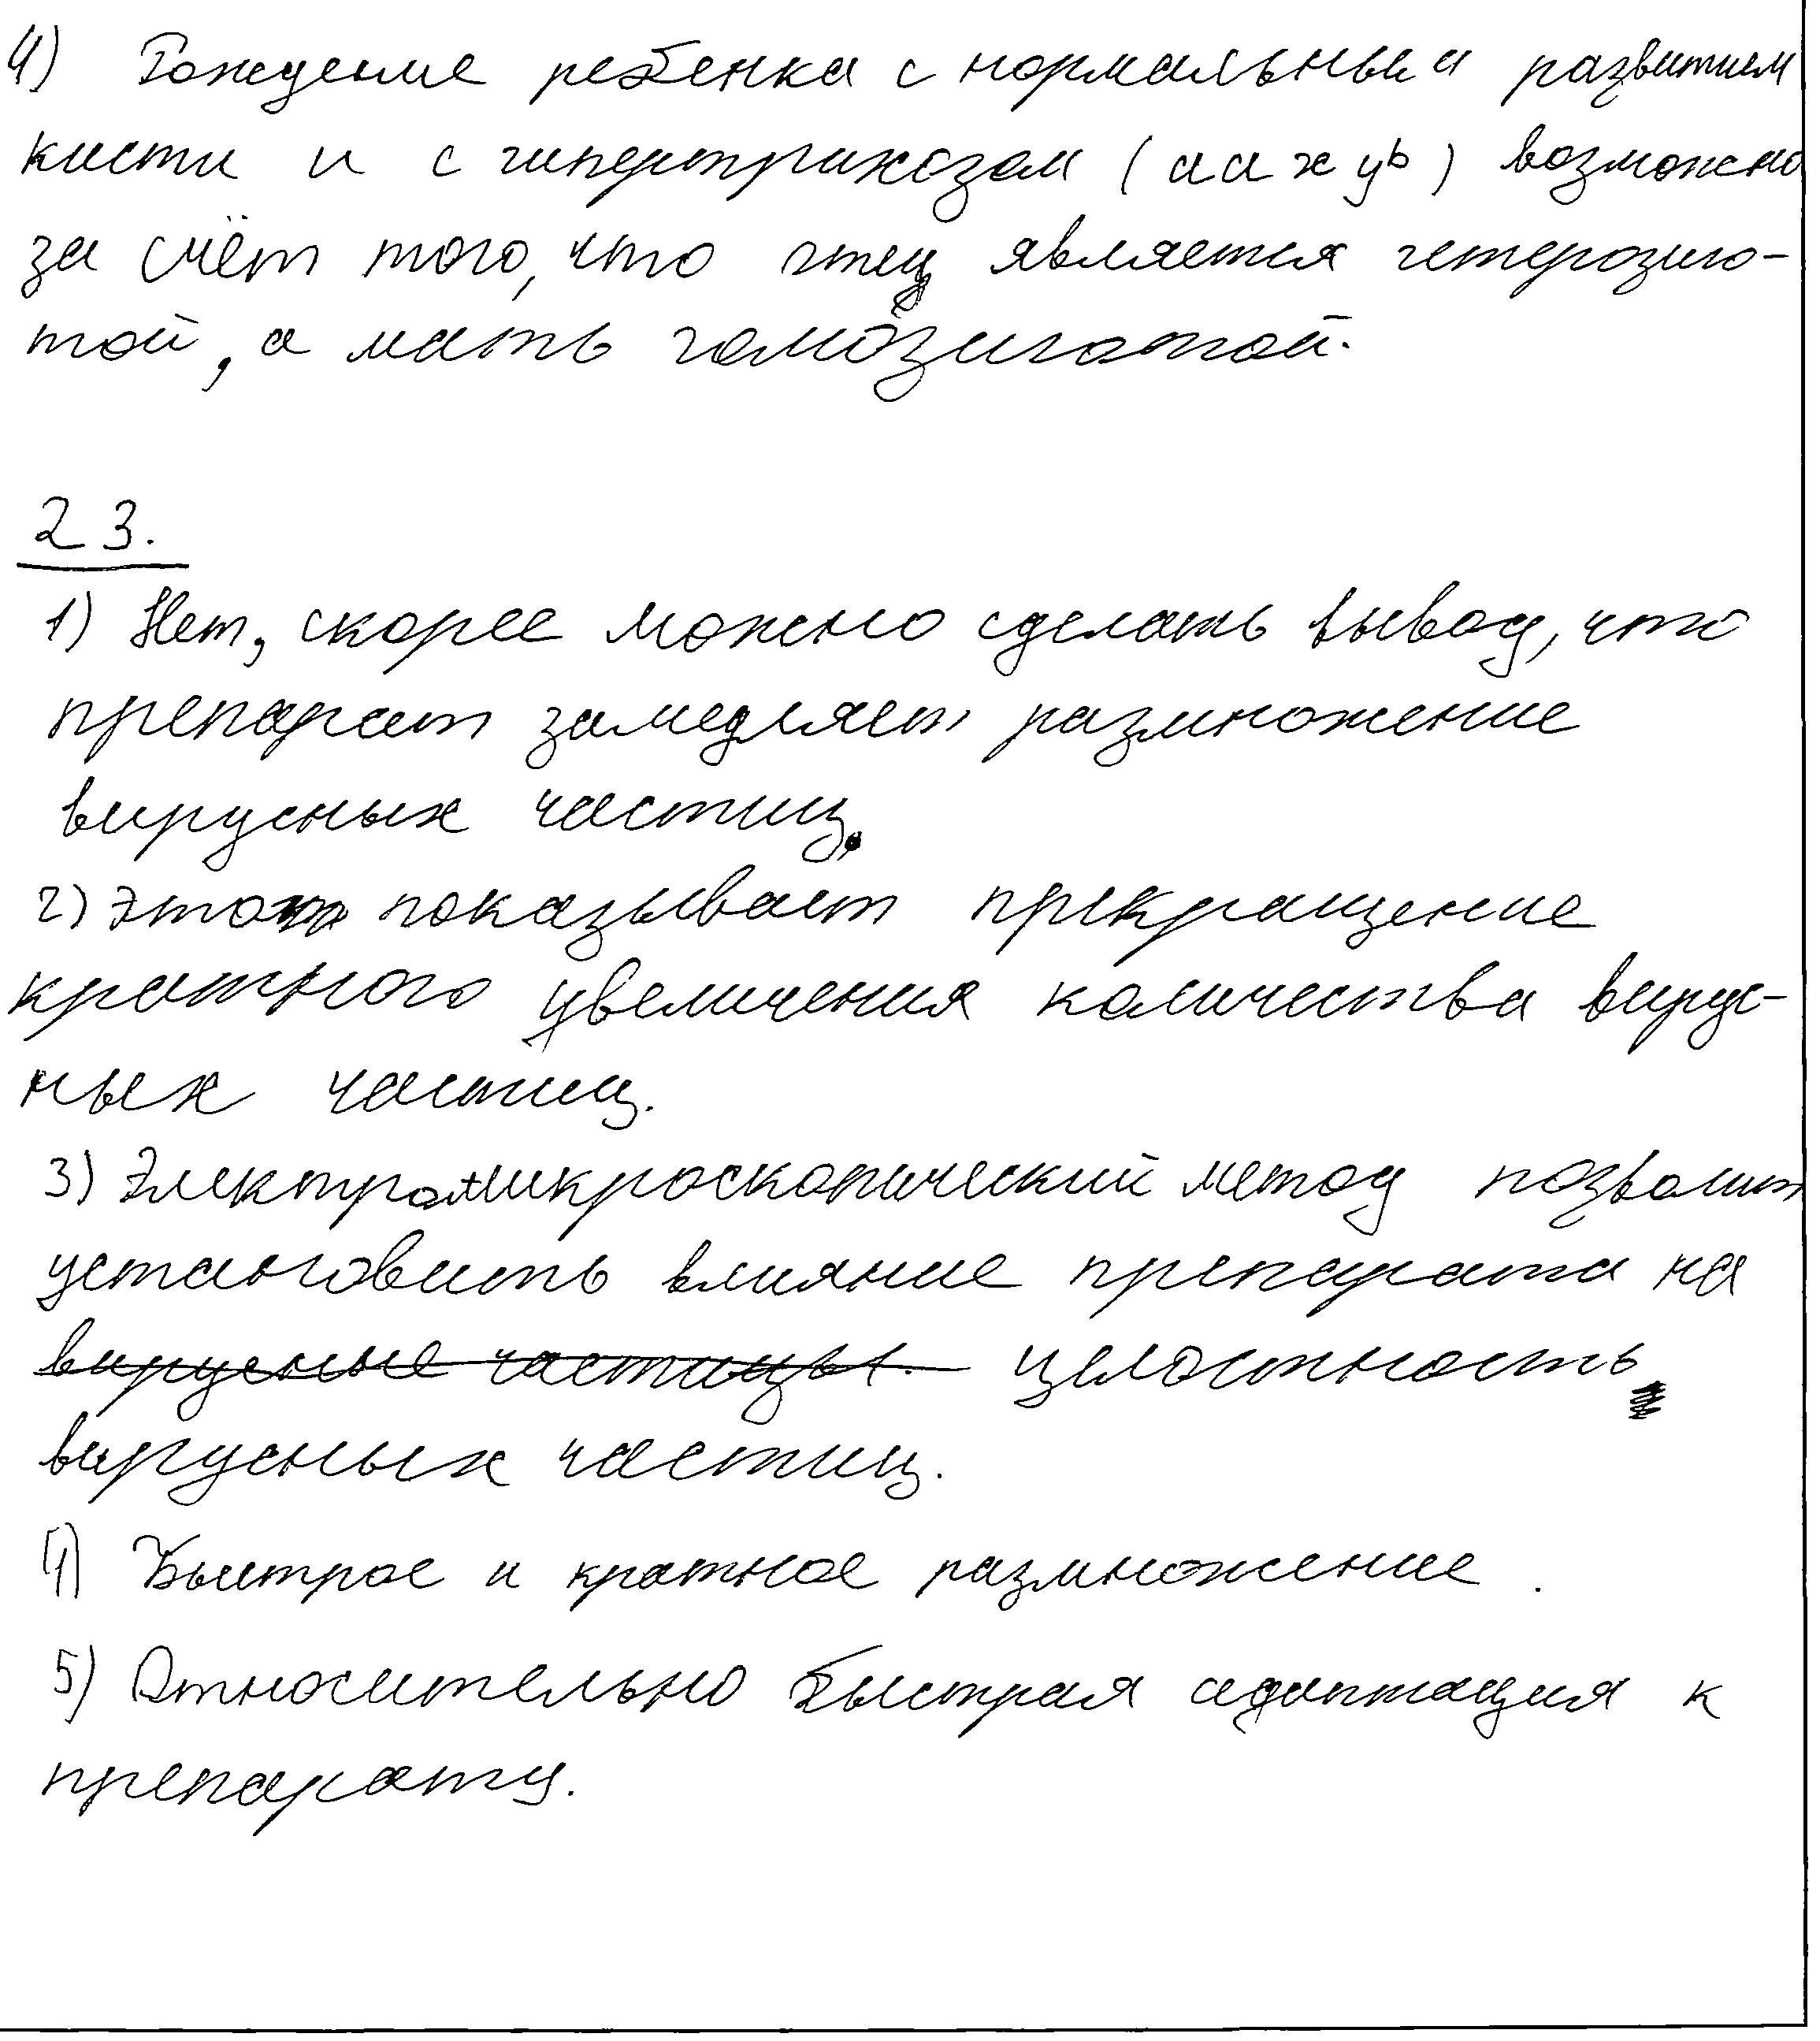 4) Рождение ребенка с нормальным развитием
кисти и с гипертрихозом (aaxyᵇ) возможно
за счёт того, что отец является гетерозиго-
той, а мать гомозиготой.
23.
1) Нет, скорее можно сделать вывод, что
препарат замедляет размножение
вирусных частиц.
2) Это показывает прекращение
кратного увеличения количества вирус-
ных частиц.
3) Электромикроскопический метод позволит
установить влияние препарата на
вирусные частицы. целостность
вирусных частиц.
4) Быстрое и кратное размножение.
5) Относительно быстрая адаптация к
препарату.